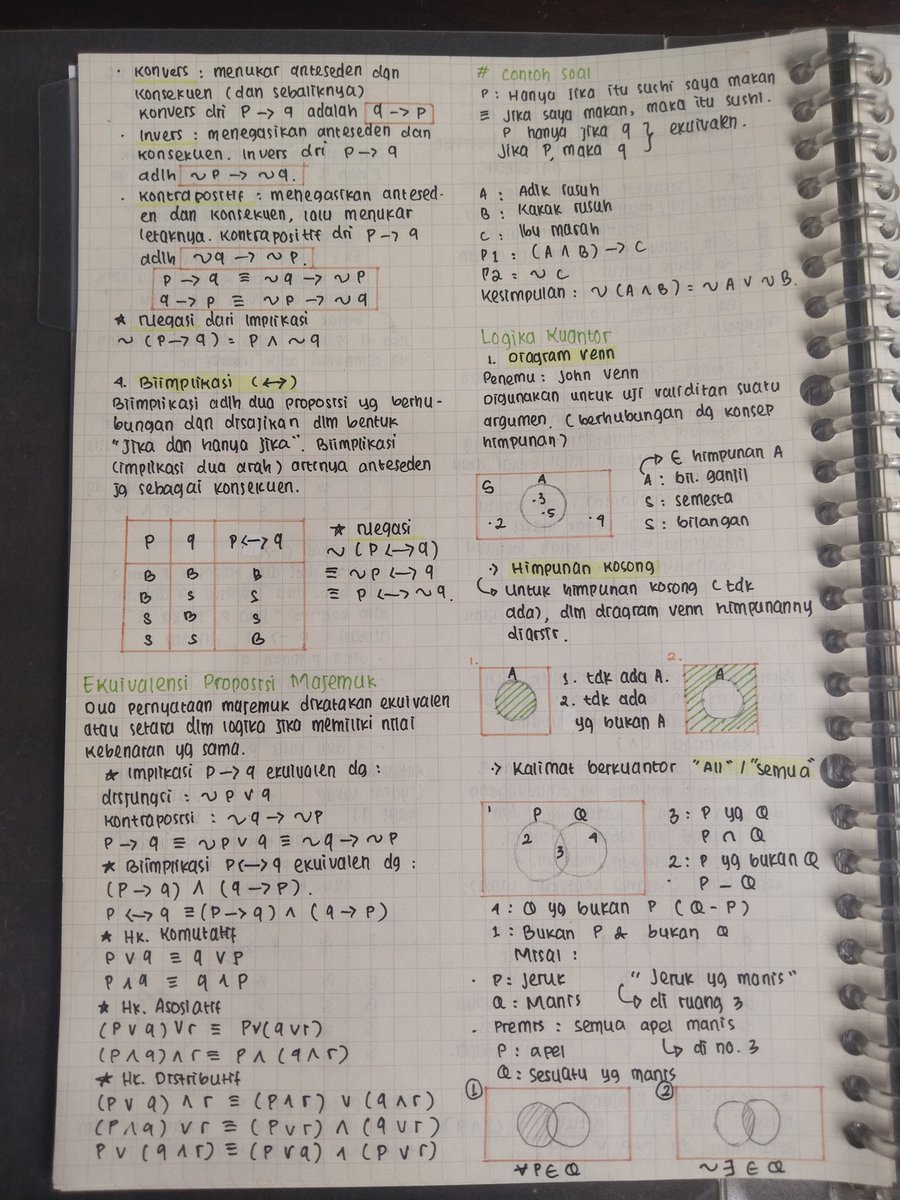 · Konvers : menukar anteseden dan
konsekuen (dan sebaliknya)
konvers dri P → q adalah q → P
· Invers : menegasikan anteseden dan
konsekuen. Invers dri P → q
adlh ~P → ~q.
· Kontrapositif : menegasikan antesed-
en dan konsekuen, lalu menukar
letaknya. Kontrapositif dri P → q
adlh ~q → ~P.
P → q ≡ ~q → ~P
q → P ≡ ~P → ~q
★ Negasi dari Implikasi
~(P → q) = P ∧ ~q
4. Biimplikasi (↔)
Biimplikasi adlh dua proposisi yg berhu-
bungan dan disajikan dlm bentuk
"Jika dan hanya jika". Biimplikasi
(implikasi dua arah) artinya anteseden
jg sebagai konsekuen.
P q P ↔ q
B B B
B S S
S B S
S S B
★ Negasi
~(P ↔ q)
≡ ~P ↔ q
≡ P ↔ ~q.
Ekuivalensi Proposisi Majemuk
Dua pernyataan majemuk dikatakan ekuivalen
atau setara dlm logika jika memiliki nilai
kebenaran yg sama.
★ Implikasi P → q ekuivalen dg :
disjungsi : ~P ∨ q
kontraposisi : ~q → ~P
P → q ≡ ~P ∨ q ≡ ~q → ~P
★ Biimplikasi P ↔ q ekuivalen dg :
(P → q) ∧ (q → P).
P ↔ q ≡ (P → q) ∧ (q → P)
★ Hk. Komutatif
P ∨ q ≡ q ∨ P
P ∧ q ≡ q ∧ P
★ Hk. Asosiatif
(P ∨ q) ∨ r ≡ P ∨ (q ∨ r)
(P ∧ q) ∧ r ≡ P ∧ (q ∧ r)
★ Hk. Distributif
(P ∨ q) ∧ r ≡ (P ∧ r) ∨ (q ∧ r)
(P ∧ q) ∨ r ≡ (P ∨ r) ∧ (q ∨ r)
P ∨ (q ∧ r) ≡ (P ∨ q) ∧ (P ∨ r)
# Contoh soal
P : Hanya jika itu sushi saya makan
≡ Jika saya makan, maka itu sushi.
P hanya jika q } ekuivalen.
Jika P, maka q
A : Adik rusuh
B : Kakak rusuh
C : Ibu marah
P1 : (A ∧ B) → C
P2 = ~C
Kesimpulan : ~(A ∧ B) = ~A ∨ ~B.
Logika Kuantor
1. Diagram Venn
Penemu : John Venn
Digunakan untuk uji validitan suatu
argumen. (berhubungan dg konsep
himpunan)
S A
·3
·5
·2 ·9
∈ himpunan A
A : bil. ganjil
S : semesta
S : bilangan
·› Himpunan Kosong
Untuk himpunan kosong (tdk
ada), dlm diagram venn himpunanny
diarsir.
1. A
1. tdk ada A.
2. tdk ada
yg bukan A
2. A
·› Kalimat berkuantor "All" / "semua"
1 P Q
2 3 4
3 : P yg Q
P ∩ Q
2 : P yg bukan Q
P - Q
4 : Q yg bukan P (Q - P)
1 : Bukan P & bukan Q
Misal :
· P : Jeruk "Jeruk yg manis"
Q : Manis ↳ di ruang 3
· Premis : semua apel manis
P : apel ↳ di no. 3
Q : Sesuatu yg manis
① ②
∀P ∈ Q ~∃ ∈ Q